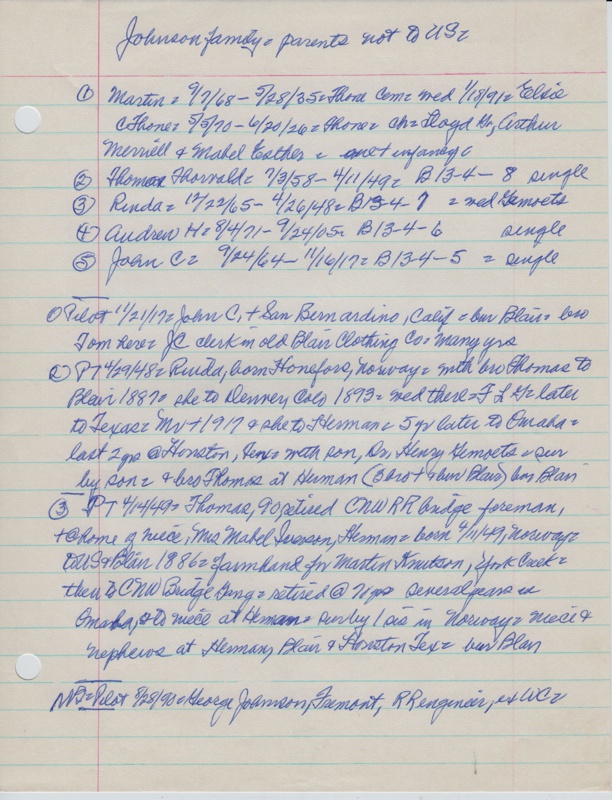 Johnson family = parents not to US =
① Martin = 9/7/68 – 5/28/35 = Thone Cem = wed 1/18/91 = Elsie
CThone = 5/5/70 – 6/20/26 = Thone = ch = Lloyd , Arthur
Merrill & Mabel Esther = one + infancy =
② Thomas Thorvald = 7/3/58 – 4/11/49 = B 13-4-8 single
③ Rinda = 12/22/65 – 4/26/48 = B 13-4 7 = wed Gemoets
④ Andrew H = 8/4/71 – 9/24/05 = B 13-4-6 single
⑤ John C = 9/24/64 – 11/16/17 = B 13-4-5 = single
① Pilot 11/21/17 = John C, + San Bernardino, Calif = bur Blair = bro
Tom here = JC clerk in old Blair Clothing Co = many yrs
② PT 4/29/48 = Rinda, born Honefors, Norway = with bro Thomas to
Blair 1887 = she to Denver, Colo 1893 = wed there = F L G = later
to Texas = Mr + 1917 & she to Herman = 5 yr later to Omaha =
last 2 yrs @ Houston, Tex = with son, Dr. Henry Gemoets = sur
by son = & bro Thomas at Herman (3 bro + & bur Blair) bur Blair
③ PT 4/14/49 = Thomas, 90 retired CNW RR bridge foreman,
+ @ home of niece, Mrs Mabel Iverson, Herman = born 4/11/49, Norway =
to US & Blair 1886 = farmhand for Martin Knutson, York Creek =
then to CNW Bridge Gang = retired @ 70 yrs several years in
Omaha, & to niece at Herman = sur by 1 sis in Norway = niece &
nephews at Herman, Blair & Houston Tex = bur Blair
NB = Pilot 8/28/90 = George Johnson, Fremont, RR engineer, ex WC =